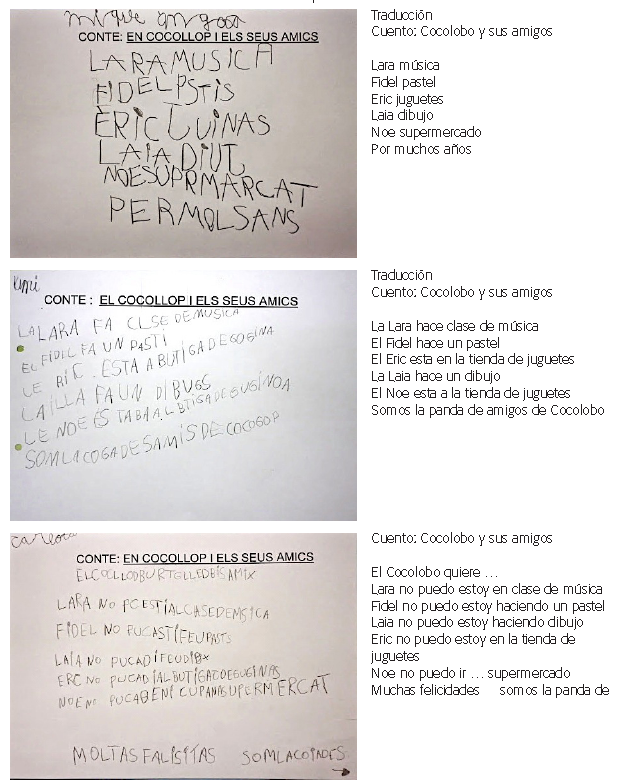 miquel
CONTE: EN COCOLLOP I ELS SEUS AMICS
LARAMUSICA
FIDELPSTIS
ÈRIC LUINAS
LAIA DIUT
NOESUPRMARCAT
PERMOLSANS
Traducción
Cuento: Cocolobo y sus amigos
Lara música
Fidel pastel
Eric juguetes
Laia dibujo
Noe supermercado
Por muchos años
CONTE : EL COCOLLOP I ELS SEUS AMICS
LALARA FA CLSE DEMUSICA
EL FIDEL FA UN PASTI
LE RIC . ESTA A BUTIGA DE GOGINA
LAILLA FA UN DIBUGS
LE NOE ÉS TABA AL BTIGA DE GUGINDA
SOMLACOGADESAMIS DE COCOGOP
Traducción
Cuento: Cocolobo y sus amigos
La Lara hace clase de música
El Fidel hace un pastel
El Eric esta en la tienda de juguetes
La Laia hace un dibujo
El Noe esta a la tienda de juguetes
Somos la panda de amigos de Cocolobo
carlota
CONTE: EN COCOLLOP I ELS SEUS AMICS
LARA NO PCESTIALCASEDEMSICA
FIDEL NO PUCASTIFEUPASTS
LAIA NO PUCADIFEUDIBX
ERC NO PUCADIALBUTIGACDEGUGINAS
NOENO PUCABENICUPANASUPERMERCAT
MOLTAS FALISITAS SOMLACOIADES
Cuento: Cocolobo y sus amigos
El Cocolobo quiere ...
Lara no puedo estoy en clase de música
Fidel no puedo estoy haciendo un pastel
Laia no puedo estoy haciendo dibujo
Eric no puedo estoy en la tienda de
juguetes
Noe no puedo ir ... supermercado
Muchas felicidades somos la panda de